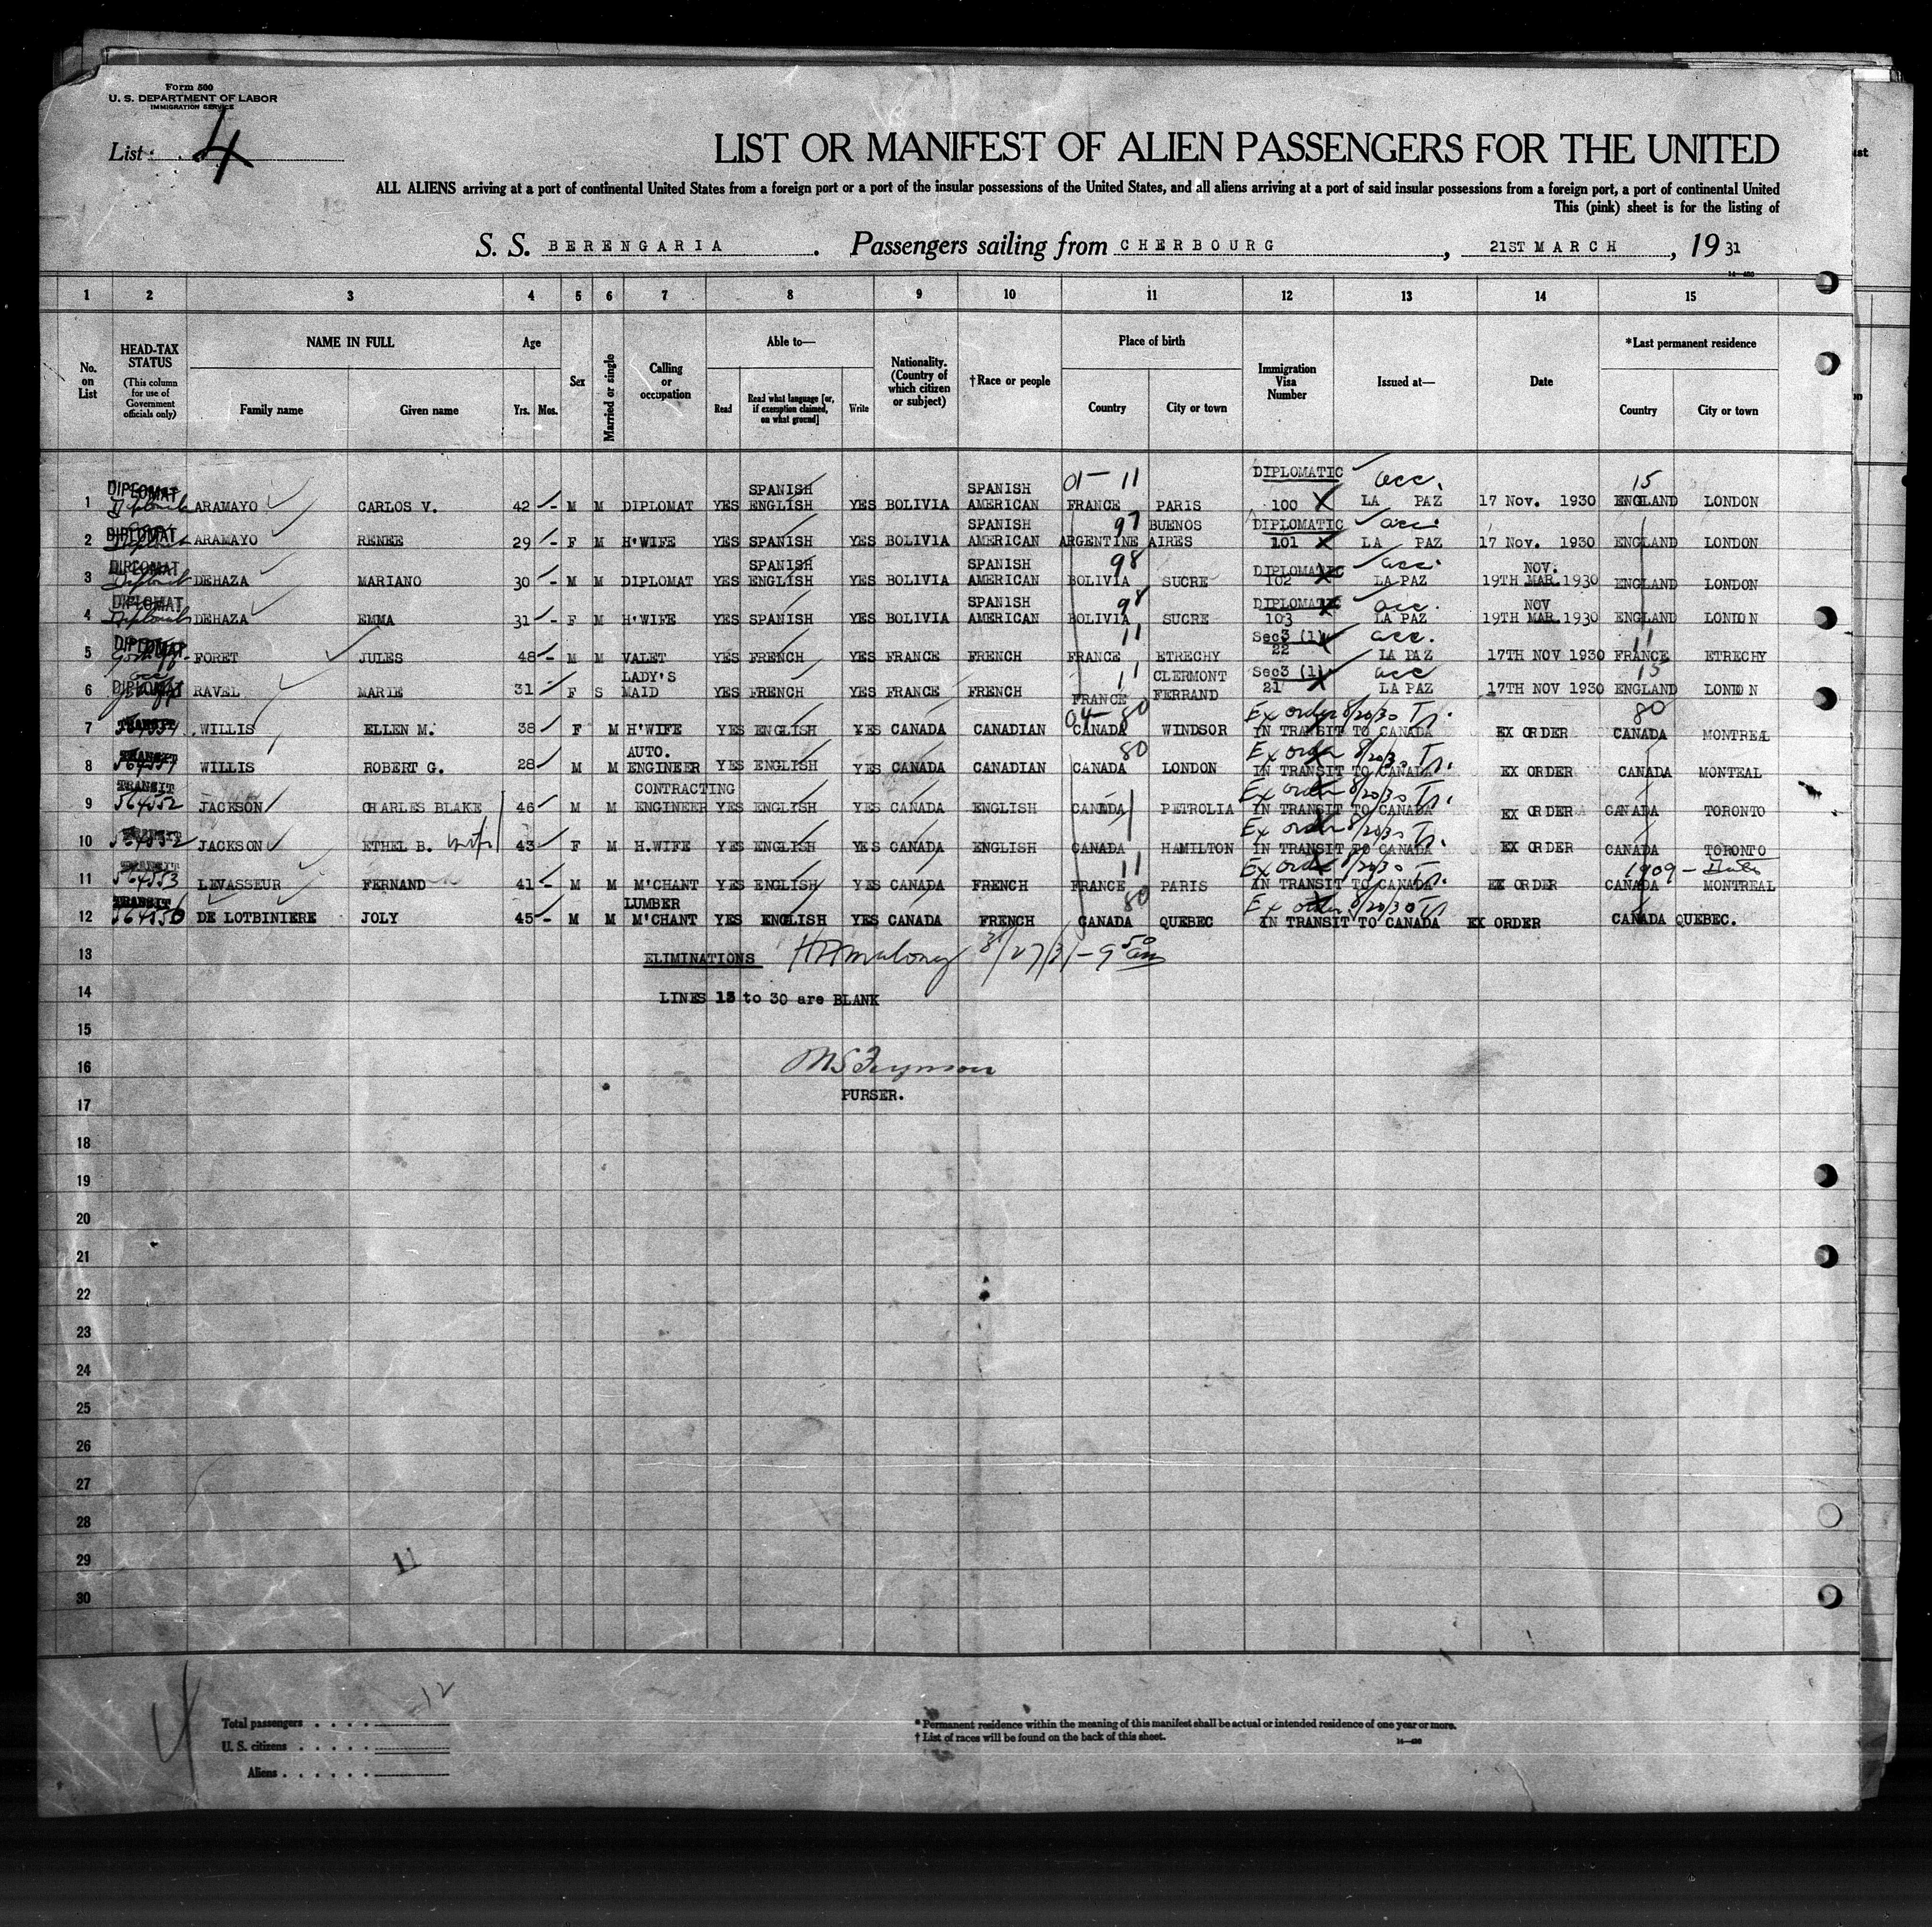 Form 500
U. S. DEPARTMENT OF LABOR
IMMIGRATION SERVICE
List 4
LIST OR MANIFEST OF ALIEN PASSENGERS FOR THE UNITED
ALL ALIENS arriving at a port of continental United States from a foreign port or a port of the insular possessions of the United States, and all aliens arriving at a port of said insular possessions from a foreign port, a port of continental United
This (pink) sheet is for the listing of
S. S. BERENGARIA. Passengers sailing from CHERBOURG, 21ST MARCH, 19 31
1 2 3 4 5 6 7 8 9 10 11 12 13 14 15
No. on List
HEAD-TAX STATUS (This column for use of Government officials only)
NAME IN FULL Family name Given name
Age Yrs. Mos.
Sex
Married or single
Calling or occupation
Able to— Read Read what language [or, if exemption claimed, on what ground] Write
Nationality. (Country of which citizen or subject)
†Race or people
Place of birth Country City or town
Immigration Visa Number
Issued at—
Date
*Last permanent residence Country City or town
1 DIPLOMAT ARAMAYO CARLOS V. 42 - M M DIPLOMAT YES SPANISH ENGLISH YES BOLIVIA SPANISH AMERICAN 01-11 FRANCE PARIS DIPLOMATIC 100 acc. LA PAZ 17 Nov. 1930 15 ENGLAND LONDON
2 DIPLOMAT ARAMAYO RENEE 29 - F M H'WIFE YES SPANISH YES BOLIVIA SPANISH AMERICAN 97 ARGENTINE BUENOS AIRES DIPLOMATIC 101 acc. LA PAZ 17 Nov. 1930 ENGLAND LONDON
3 DIPLOMAT DEHAZA MARIANO 30 - M M DIPLOMAT YES SPANISH ENGLISH YES BOLIVIA SPANISH AMERICAN 98 BOLIVIA SUCRE DIPLOMATIC 102 acc. LA PAZ 19TH MAR. NOV. 1930 ENGLAND LONDON
4 DIPLOMAT DEHAZA EMMA 31 - F M H'WIFE YES SPANISH YES BOLIVIA SPANISH AMERICAN 98 BOLIVIA SUCRE DIPLOMATIC 103 acc. LA PAZ 19TH MAR. NOV 1930 ENGLAND LONDON
5 DIPLOMAT FORET JULES 48 - M M VALET YES FRENCH YES FRANCE FRENCH 11 FRANCE ETRECHY Sec3 (1) 22 acc. LA PAZ 17TH NOV 1930 11 FRANCE ETRECHY
6 DIPLOMAT RAVEL MARIE 31 F S LADY'S MAID YES FRENCH YES FRANCE FRENCH 11 FRANCE CLERMONT FERRAND Sec3 (1) 21 acc LA PAZ 17TH NOV 1930 15 ENGLAND LONDON
7 TRANSIT WILLIS ELLEN M. 38 F M H'WIFE YES ENGLISH YES CANADA CANADIAN 04-80 CANADA WINDSOR Ex order 8/20/30 Tr. IN TRANSIT TO CANADA EX ORDER 80 CANADA MONTREAL
8 TRANSIT WILLIS ROBERT G. 28 M M AUTO. ENGINEER YES ENGLISH YES CANADA CANADIAN 80 CANADA LONDON Ex order 8/20/30 Tr. IN TRANSIT TO CANADA EX ORDER CANADA MONTEAL
9 TRANSIT 564552 JACKSON CHARLES BLAKE 46 M M CONTRACTING ENGINEER YES ENGLISH YES CANADA ENGLISH CANADA PETROLIA Ex order 8/20/30 Tr. IN TRANSIT TO CANADA EX ORDER CANADA TORONTO
10 TRANSIT 564552 JACKSON ETHEL B. wife 43 F M H.WIFE YES ENGLISH YES CANADA ENGLISH CANADA HAMILTON Ex order 8/20/30 Tr. IN TRANSIT TO CANADA EX ORDER CANADA TORONTO
11 TRANSIT 564553 LEVASSEUR FERNAND 41 - M M M'CHANT YES ENGLISH YES CANADA FRENCH 11 FRANCE PARIS Ex order 8/20/30 Tr. IN TRANSIT TO CANADA EX ORDER 1909 - CANADA MONTREAL
12 TRANSIT DE LOTBINIERE JOLY 45 - M M LUMBER M'CHANT YES ENGLISH YES CANADA FRENCH 80 CANADA QUEBEC Ex order 8/20/30 Tr IN TRANSIT TO CANADA EX ORDER CANADA QUEBEC.
13 ELIMINATIONS
14 LINES 13 to 30 are BLANK
15
16
17 PURSER.
18
19
20
21
22
23
24
25
26
27
28
29 11
30
4
12
Total passengers
U. S. citizens
Aliens
* Permanent residence within the meaning of this manifest shall be actual or intended residence of one year or more.
† List of races will be found on the back of this sheet.